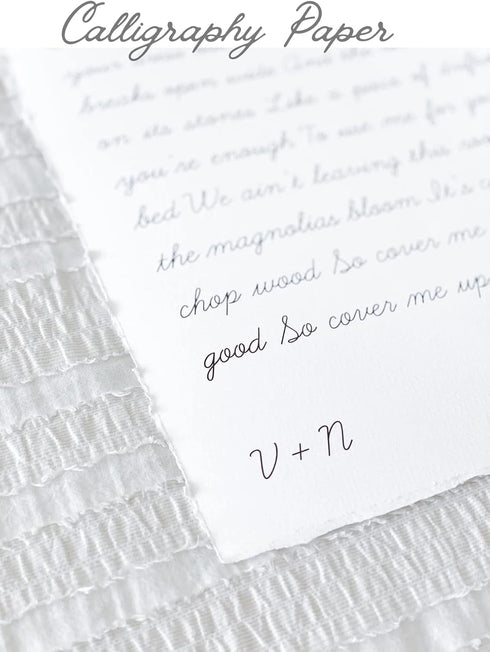 Calligraphy Paper
your
breaks open wide And the
on its stones Like a piece of
you're enough To use me for
bed We ain't leaving this
the magnolias bloom It's
chop wood So cover me
good So cover me up
V + N